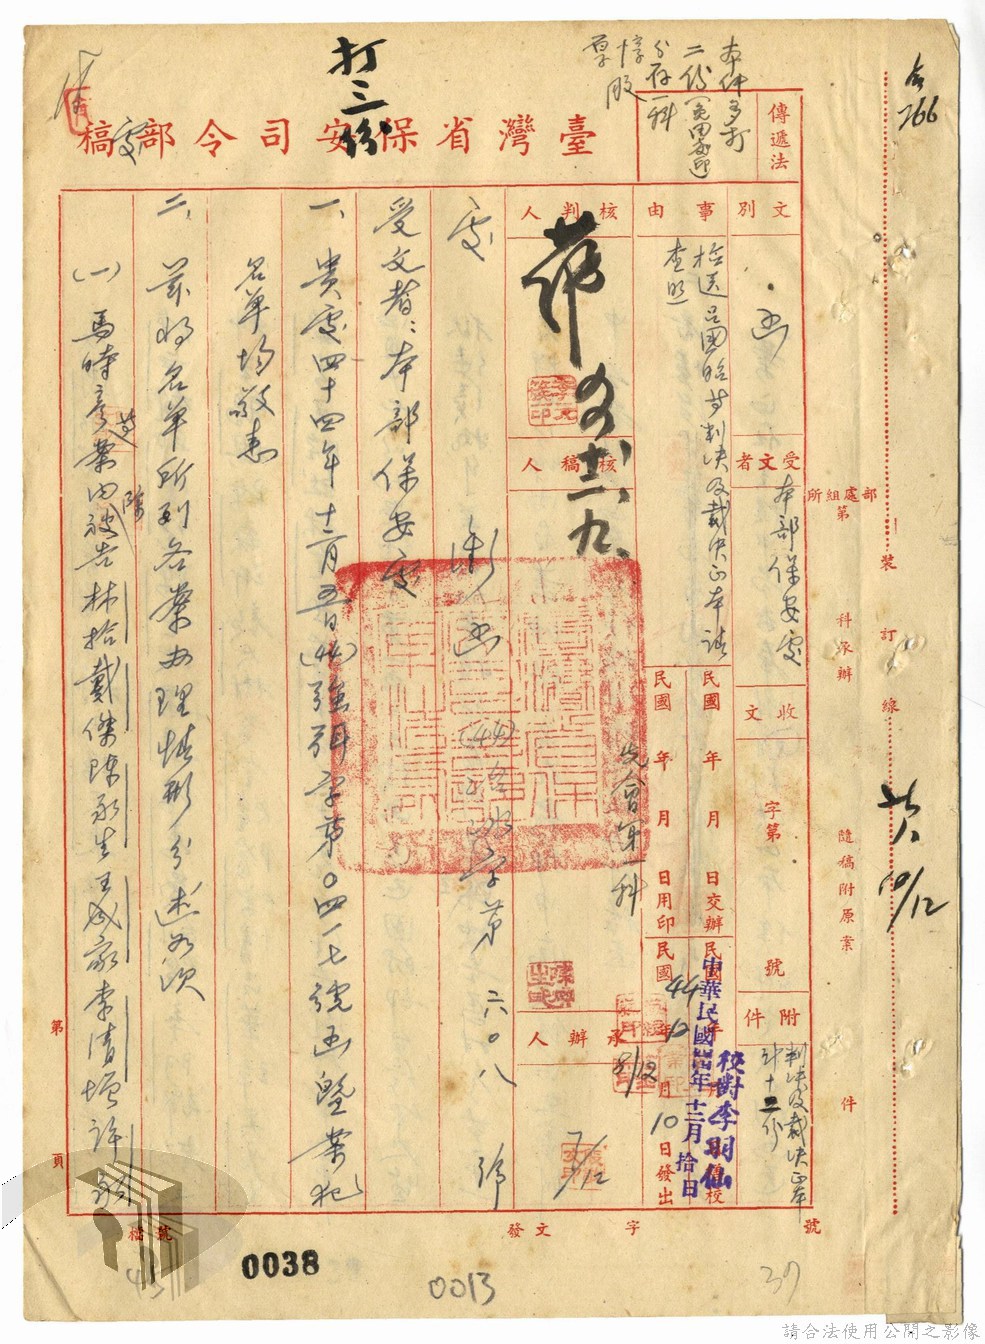 令766
本件多打
二份
分存一科
惇股
打三份
臺灣省保安司令部處稿
傳遞法
文別
函
事由
檢送呂國昭等判決及裁決正本請
查照
核判人
受文者
本部保安處
核稿人
收文
字第
號
附件
判決及裁決正本
計十二份
民國 年 月 日交辦
民國 年 月 日用印
民國44年12月10日發出
中華民國44年十二月拾日
校對李羽仙
承辦人
8/12
7/12
先會第一科
部處組所
第
科承辦
隨稿附原案
件
裝
訂
線
10/12
號
受文者：本部保安處
一、貴處四十四年十二月五日(44)強弭字第〇四一七號函暨案犯
名單均敬悉
二、茲將名單所列各案辦理情形分述如次
(一)馬時彥等案內被告林拾戴傑陳永生王成家李清增許
六〇八
號
第
頁
檔號
發文
字
號
0038
0013
37
請合法使用公開之影像